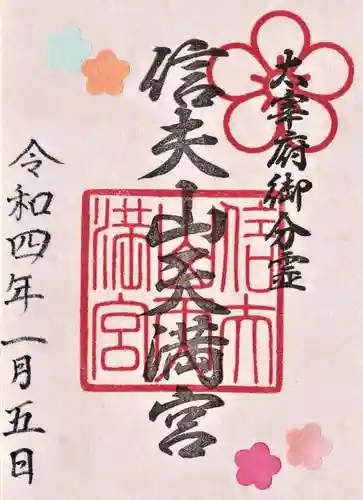 太宰府御分霊
信夫山天満宮
信夫山天満宮
令和四年一月五日